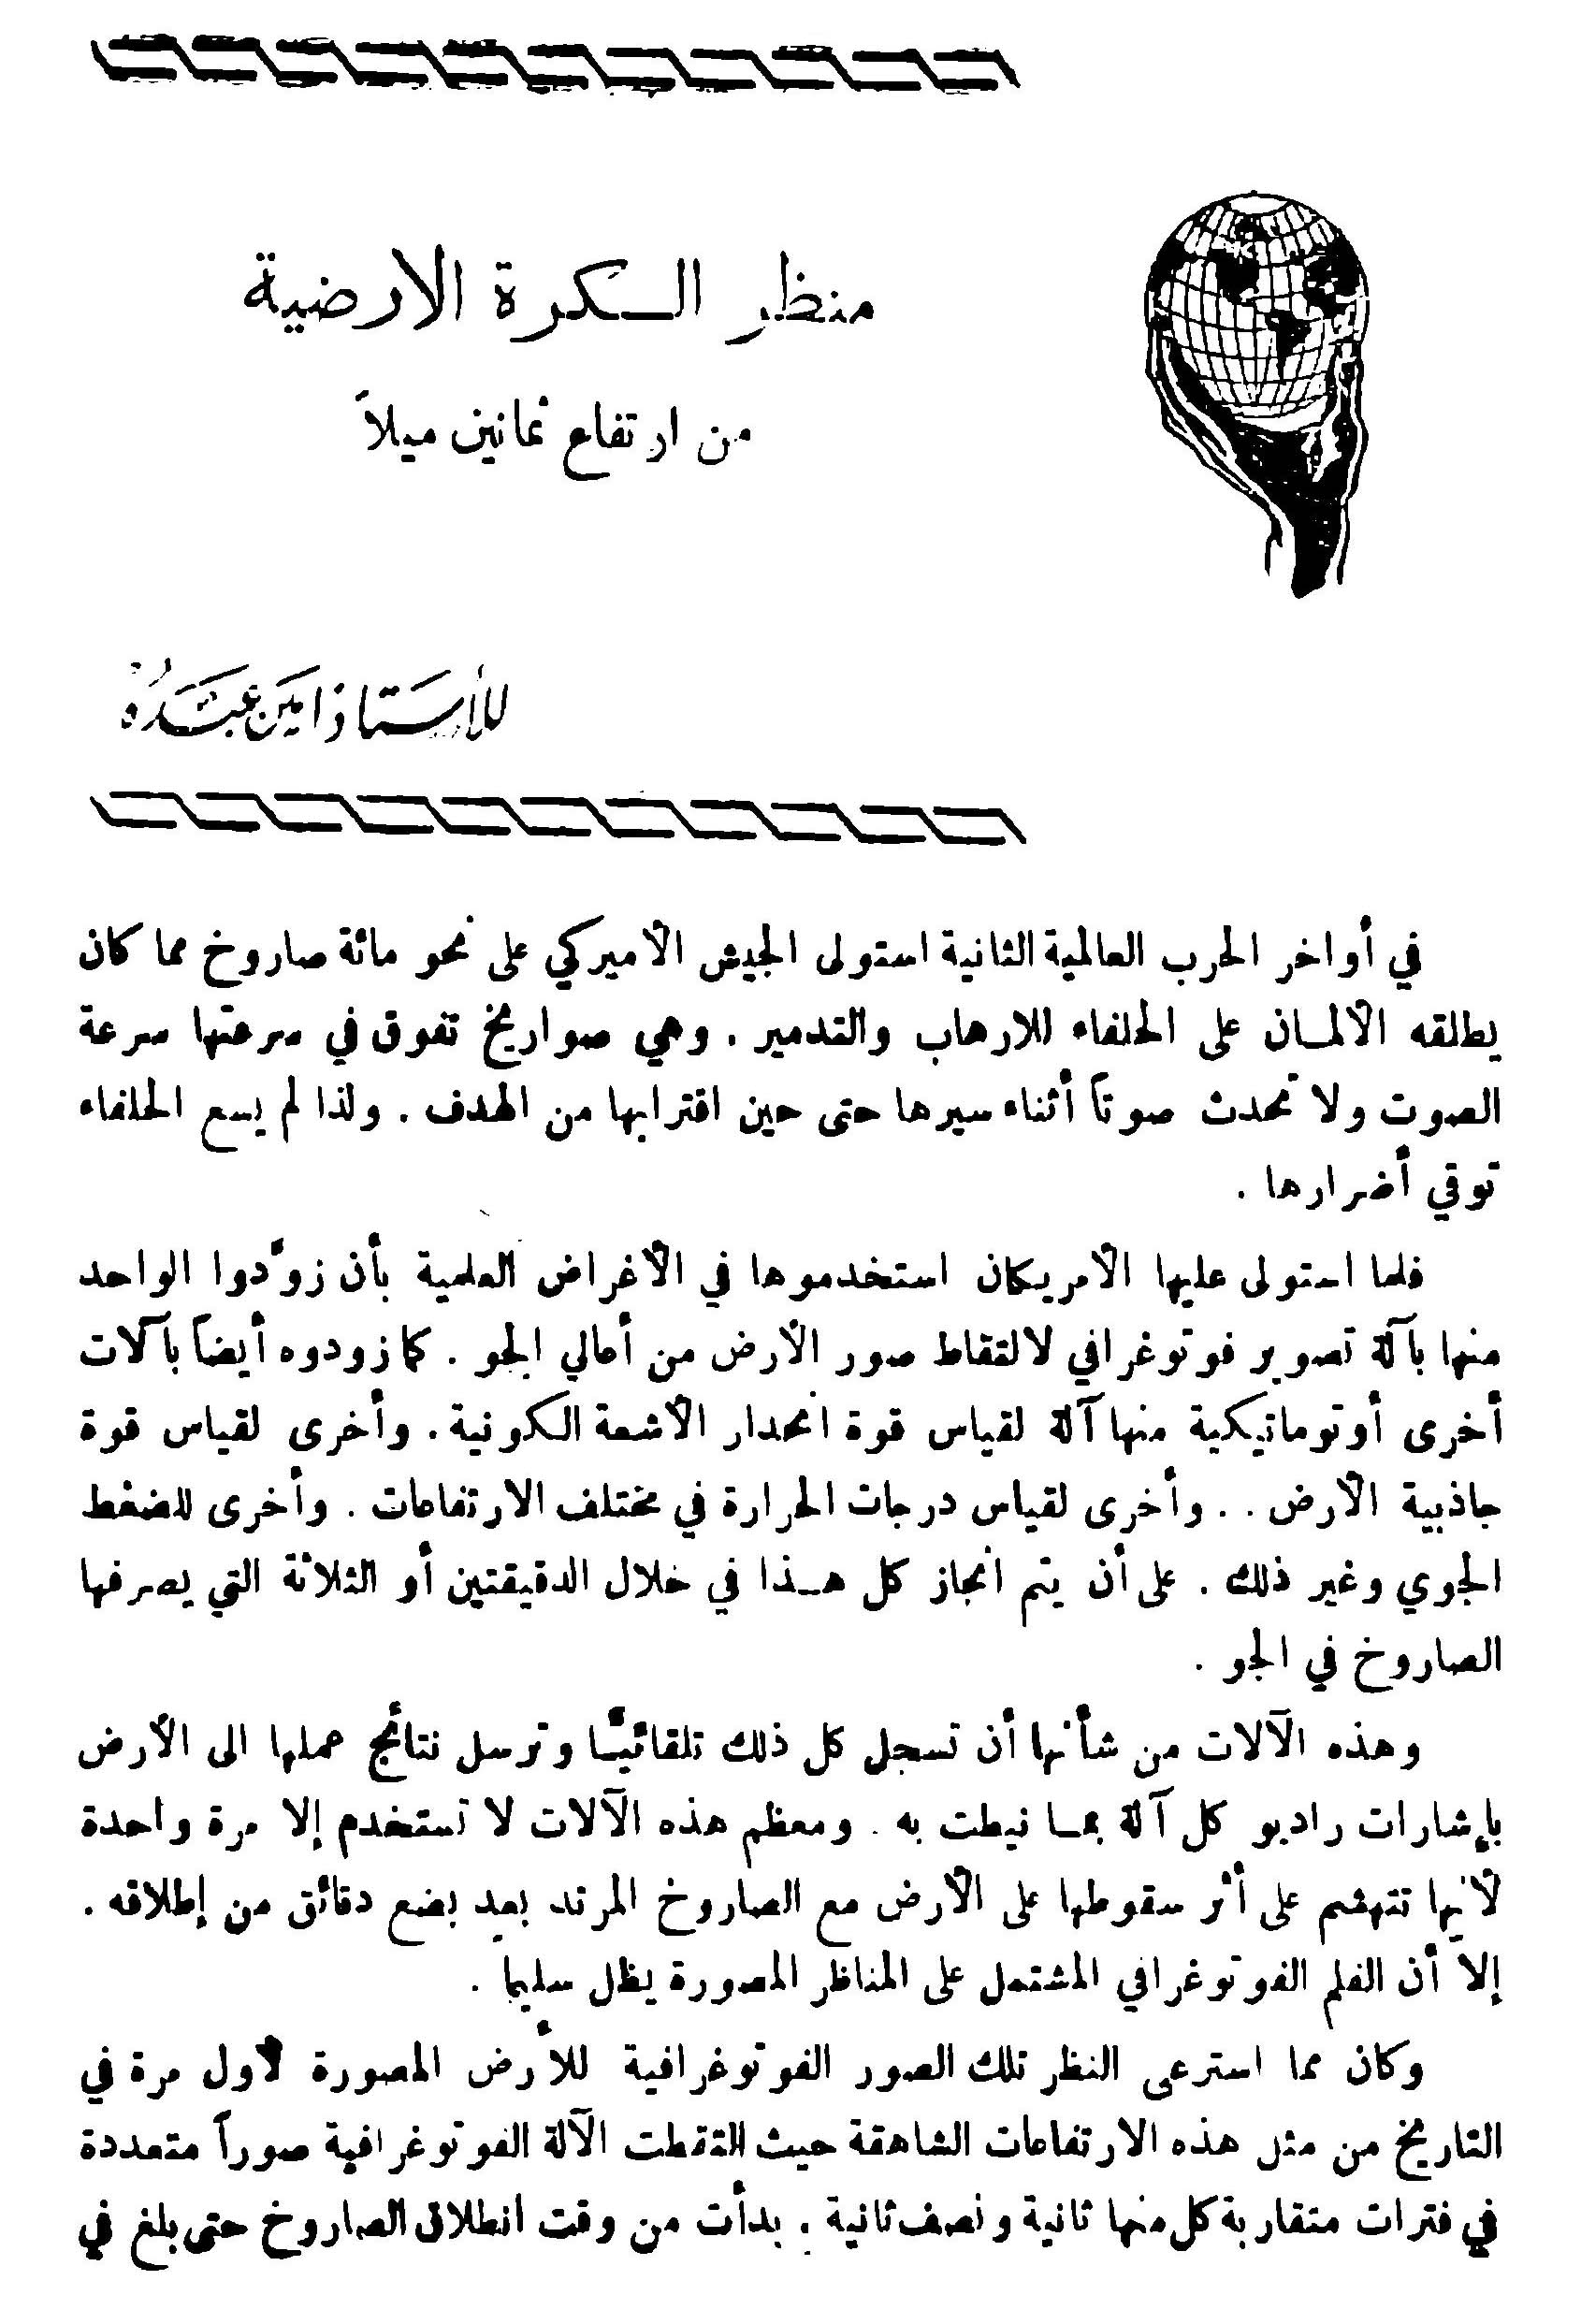 منظر الكرة الارضية
من ارتفاع ثمانين ميلاً
للأستاذ امين عبده
في أواخر الحرب العالمية الثانية استولى الجيش الأميركي على نحو مائة صاروخ مما كان
يطلقه الألمان على الحلفاء للارهاب والتدمير . وهي صواريخ تفوق في سرعتها سرعة
الصوت ولا تحدث صوتاً أثناء سيرها حتى حين اقترابها من الهدف . ولذا لم يسع الحلفاء
توقي أضرارها .
فلما استولى عليها الأمريكان استخدموها في الأغراض العلمية بأن زوَّدوا الواحد
منها بآلة تصوير فوتوغرافي لالتقاط صور الأرض من أعالي الجو . كما زودوه أيضاً بآلات
أخرى أوتوماتيكية منها آلة لقياس قوة انحدار الأشعة الكونية . وأخرى لقياس قوة
جاذبية الأرض . . وأخرى لقياس درجات الحرارة في مختلف الارتفاعات . وأخرى للضغط
الجوي وغير ذلك . على أن يتم انجاز كل هذا في خلال الدقيقتين أو الثلاثة التي يصرفها
الصاروخ في الجو .
وهذه الآلات من شأنها أن تسجل كل ذلك تلقائيًّا وترسل نتائج عملها الى الأرض
بإشارات راديو كل آلة بما نيطت به . ومعظم هذه الآلات لا تستخدم إلا مرة واحدة
لأنها تتهشم على أثر سقوطها على الأرض مع الصاروخ المرتد بعد بضع دقائق من إطلاقه .
إلا أن الفلم الفوتوغرافي المشتمل على المناظر المصورة يظل سليما .
وكان مما استرعى النظر تلك الصور الفوتوغرافية للأرض المصورة لأول مرة في
التاريخ من مثل هذه الارتفاعات الشاهقة حيث التقطت الآلة الفوتوغرافية صوراً متعددة
في فترات متقاربة كل منها ثانية ونصف ثانية . بدأت من وقت انطلاق الصاروخ حتى بلغ في